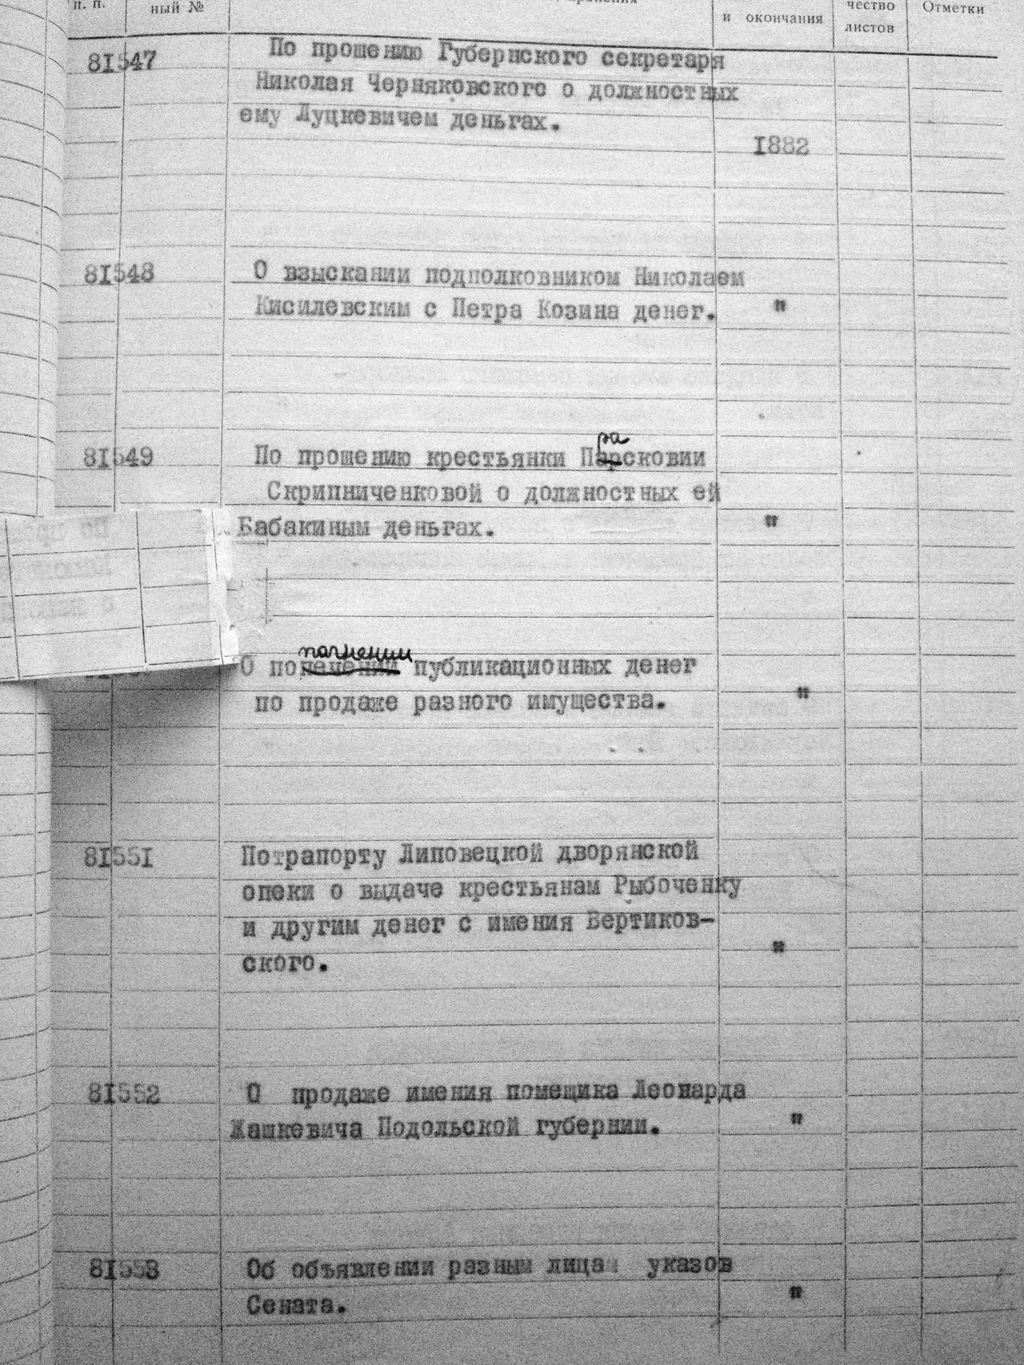 п. п.
ный №
и окончания
чество
листов
Отметки
81547 По прошению Губернского секретаря
Николая Черняковского о должностных
ему Луцкевичем деньгах.
1882
81548 О взыскании подполковником Николаем
Кисилевским с Петра Козина денег. "
ра
81549 По прошению крестьянки Парсковии
Скрипниченковой о должностных ей
Бабакиным деньгах. "
полнении
О по публикационных денег
по продаже разного имущества. "
81551 Потрапорту Липовецкой дворянской
опеки о выдаче крестьянам Рыбоченку
и другим денег с имения Вертиков-
ского. "
81552 О продаже имения помещика Леонарда
Жашкевича Подольской губернии. "
81553 Об объявлении разным лицам указов
Сената. "